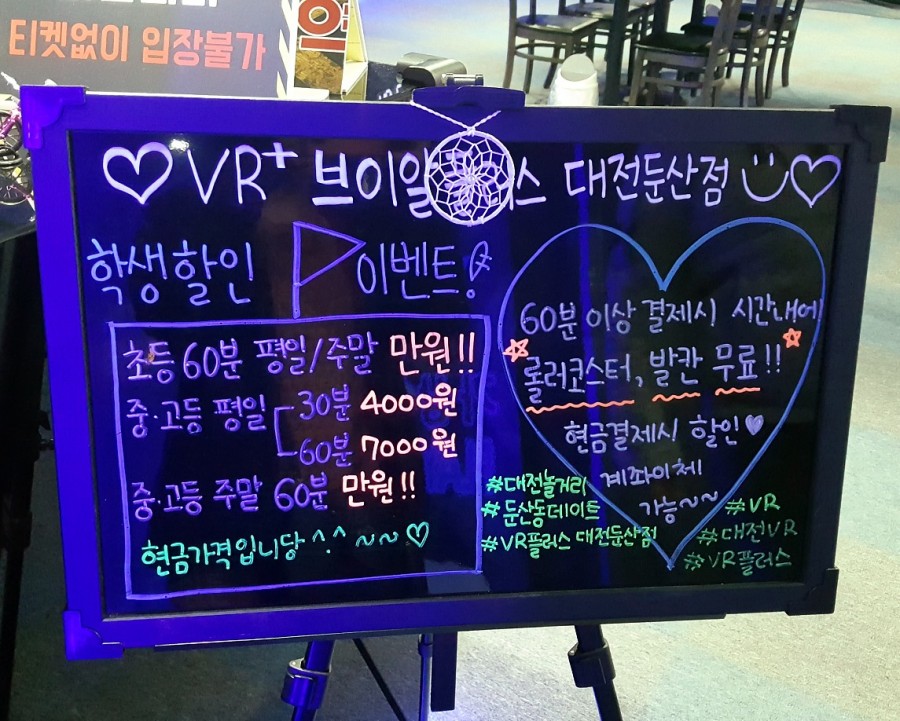 티켓없이 입장불가
VR+ 브이알 스 대전둔산점
학생할인 이벤트!
초등 60분 평일/주말 만원!!
중·고등 평일
30분 4000원
60분 7000원
중·고등 주말 60분 만원!!
현금가격입니당 ^.^ ~~♡
60분 이상 결제시 시간내에
롤러코스터, 발칸 무료!!
현금결제시 할인♥
계좌이체
가능~~
#대전놀거리
#둔산동데이트
#VR플러스 대전둔산점
#VR
#대전VR
#VR플러스